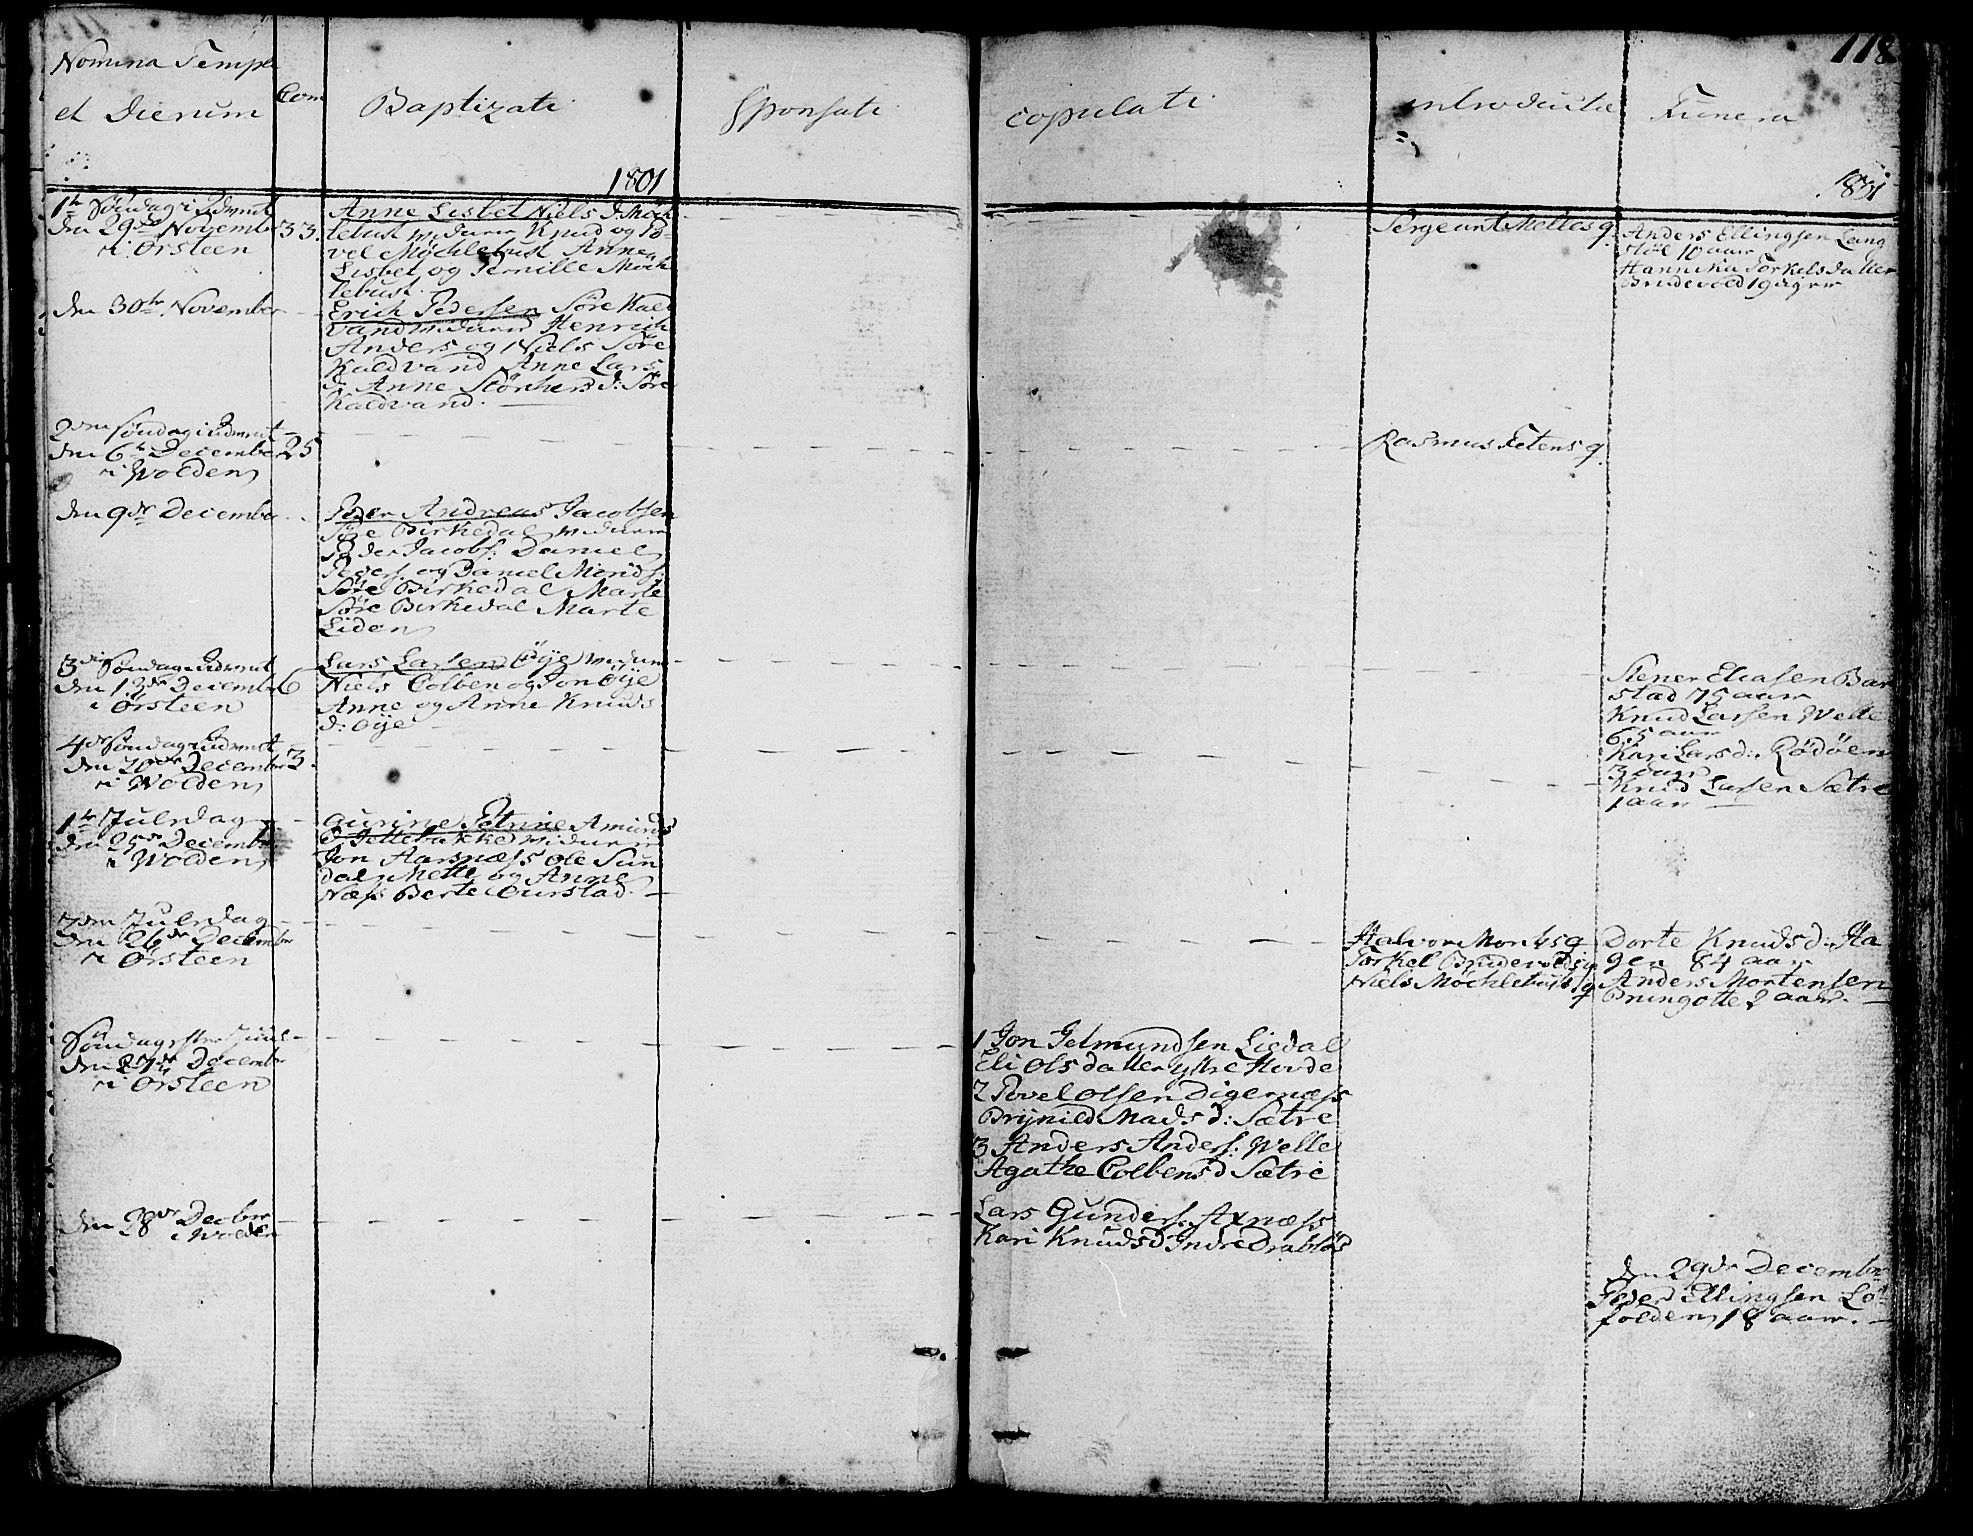 118
Nomina Templi
et Dierum
Com
Baptizati
Sponsati
copulati
introductæ
Funera
1801
1801
1te Søndag i Advent
den 29de November
i Ørsteen
33.
Anne Lisbet Niels d: Möch
lebust
Knud og Po
vel Möchlebust Anne
Lisbet og Pernille Möch
lebust.
Sergeant Melles q.
Anders Ellingsen Lang
støl 10 aar
Hannika Torkelsdatter
Brudevold 19 uger
den 30te November
Erich Pedersen Søre Kald
vand Henrich
Anders og Niels Søre
Kaldvand Anne Lars
d: Anne Størkersd: Søre
Kaldvand.
2den Søndag i Advent
den 6te December
i Wolden
25
Rasmus Fetens q.
den 9de December
Peder Andreas Jacobsen
Søre Birkedal
Peder Jacobs: Daniel
Peders. og Daniel
Søre Birkedal Marte
Søre Birkedal Marte
Liden
3die Søndag i Advent
den 13de December
i Ørsteen
6
Lars Larsen Öye
Niels Colben og Jon Öye
Anne og Anne Knuds
d: Öye
Stener Eliasen Bar
stad 75 aar
Knud Larsen Welle
65 aar
Kari Lars d: Rödöen
3 aar
Knud Larsen Sætre
1 aar
4de Søndag i Advent
den 20de December
i Wolden
3.
1te Juledag
den 25de December
i Wolden
Gurine Petrine Amunds
d: Jettebakke
Jon Aarnæss Ole Sun
dal Mette og Anne
Næss Berte Ourstad.
2den Juledag
den 26de December
i Ørsteen
Halvor Morks q
Torkel Brudevolds q
Niels Möchlebusts q
Dorte Knudsd: Ha
gen 84 aar
Anders Mortensen
2 aar.
Søndag efter Juul
den 27de December
i Ørsteen
1 Jon Jetmundsen Liedal
Eli Olsdatter ystre Hovde
2 Povel Olsen Digernæss
Brynild Mads d: Sætre
3 Anders Anders: Welle
Agathe Colbensd Sætre
den 28de Decbr
i Wolden
Lars Gunders. Axnæss
Kari Knudsd Indre Drabløs
den 29de December
Peder Ellingsen Lö
folden 18 aar.